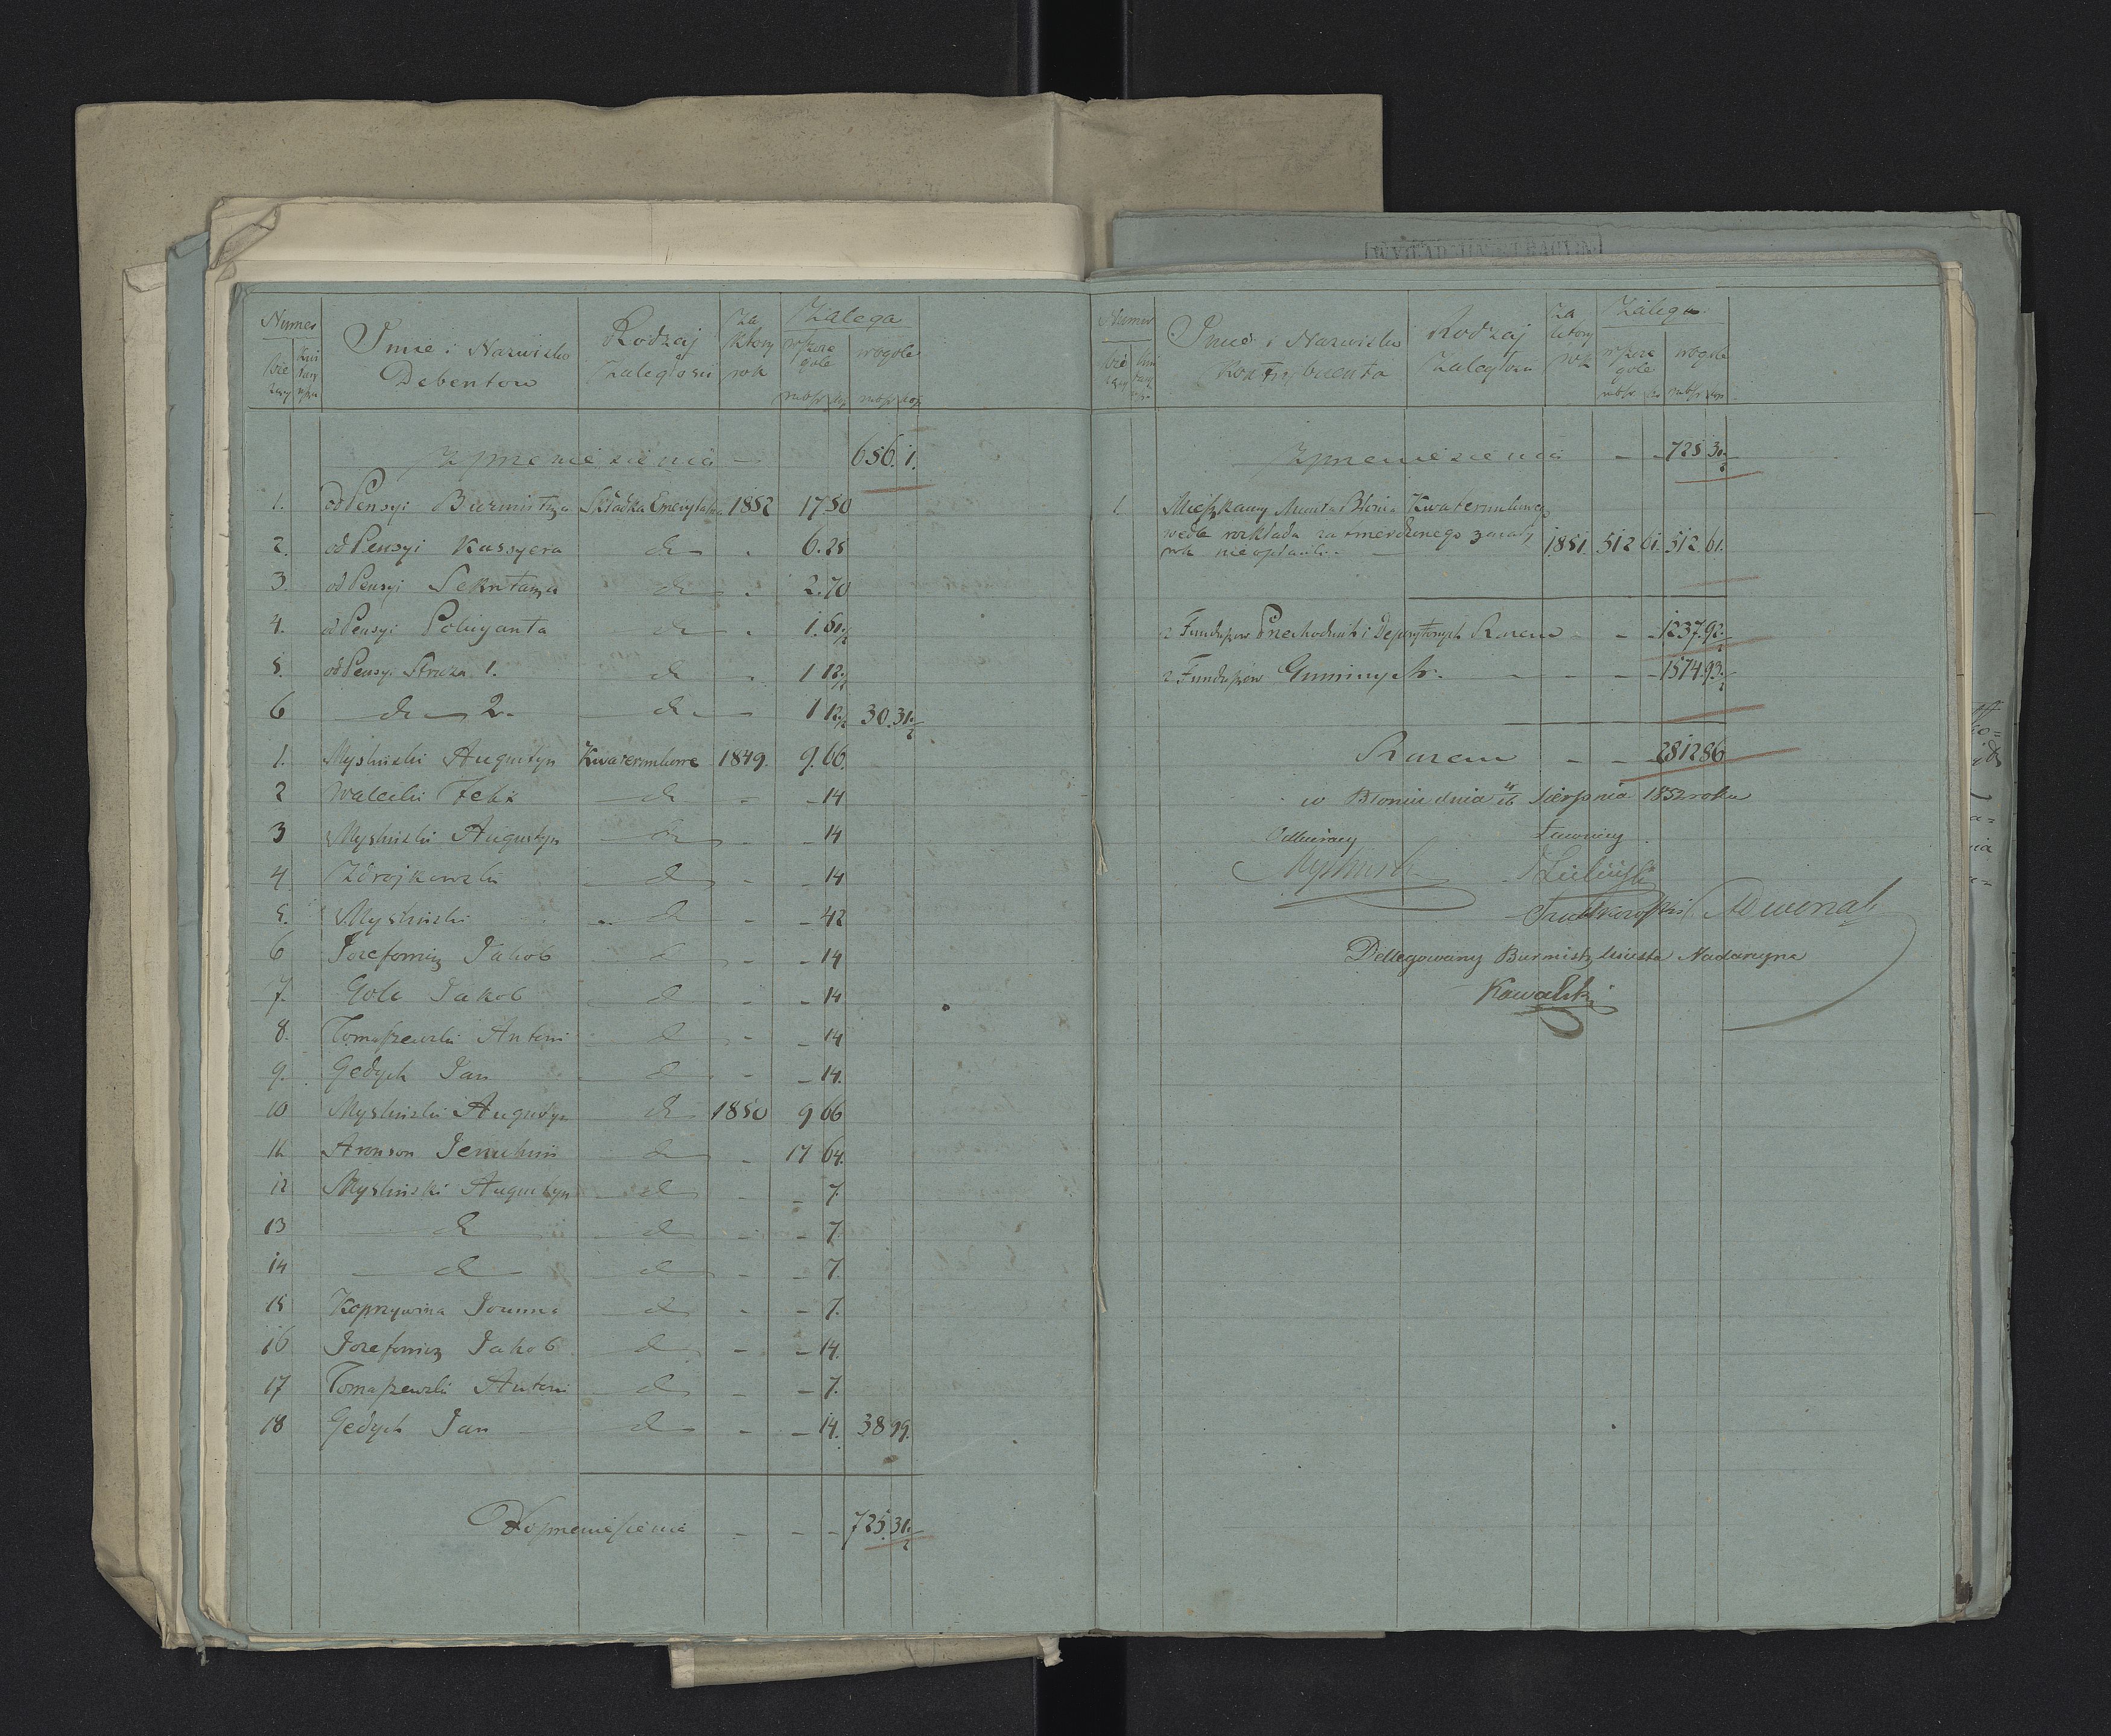 Numer
Imie i Nazwisko
Debentow
Rodzaj
Zaległości
Za
ktory
rok
Zalega
wszcze
gole
wogole
rubsr kop rubsr kop
Z przeniesienia — 656. 1.
1. od Pensyi Burmistrza Składka Emerytalna 1852 17 50
2. od Pensyi Kassyera do - 6. 25
3. od Pensyi Sekretarza do - 2. 70
4. od Pensyi Policyanta do - 1. 61 1/2
5. od Pensyi Stroża 1. do - 1 12 1/2
6 do 2. do - 1 12 1/2 30. 31 1/2
1. Myslinski Augustyn Kwaterunkowe 1849. 9. 66.
2 Walecki Felix do - - 14
3 Myslinski Augustyn do - - 14
4 Zdrojkowski do - - 14
5. Myslinski do - - 42
6 Jozefowicz Jakob do - - 14
7. Gole Jakob do - - 14
8. Tomaszewski Antoni do - - 14
9. Gedych Jan do - - 14.
10 Myslinski Augustyn do 1850 9 66
11 Aronson do - 17 64.
12 Myslinski Augustyn do - - 7.
13 do do - - 7.
14 do do - - 7.
15 Koprzywina Joanna do - - 7.
16 Jozefowicz Jakob do - - 14.
17 Tomaszewski Antoni do - - 7.
18 Gedych Jan do - - 14. 38 99.
Do przeniesienia - - - 725. 31 1/2
Numer
Imie i Nazwisko
Kontrybuenta
Rodzaj
Zaległosci
Za
ktory
rok
Zalega
wszcze
gole
wogole
rubsr ko rubsr kop
Z przeniesienia - - 725 31 1/2
1 Mieszkancy Miasta Błonia Kwaterunkowego
wedle rozkładu zatwierdzonego za cały
rok nie opłacili 1851. 512 61. 512. 61.
z Funduszow Przechodnich i Depozytowych Razem - - 1237. 92 1/2
z Funduszów Gminnych - - - 1574. 93 1/2
Razem - - 2812 86
w Błoniu dnia 4/16 Sierpnia 1852 roku
Odbierający Ławnicy
Myslinski
Delegowany Burmistrz Miasta Nadarzyna
Kowalski